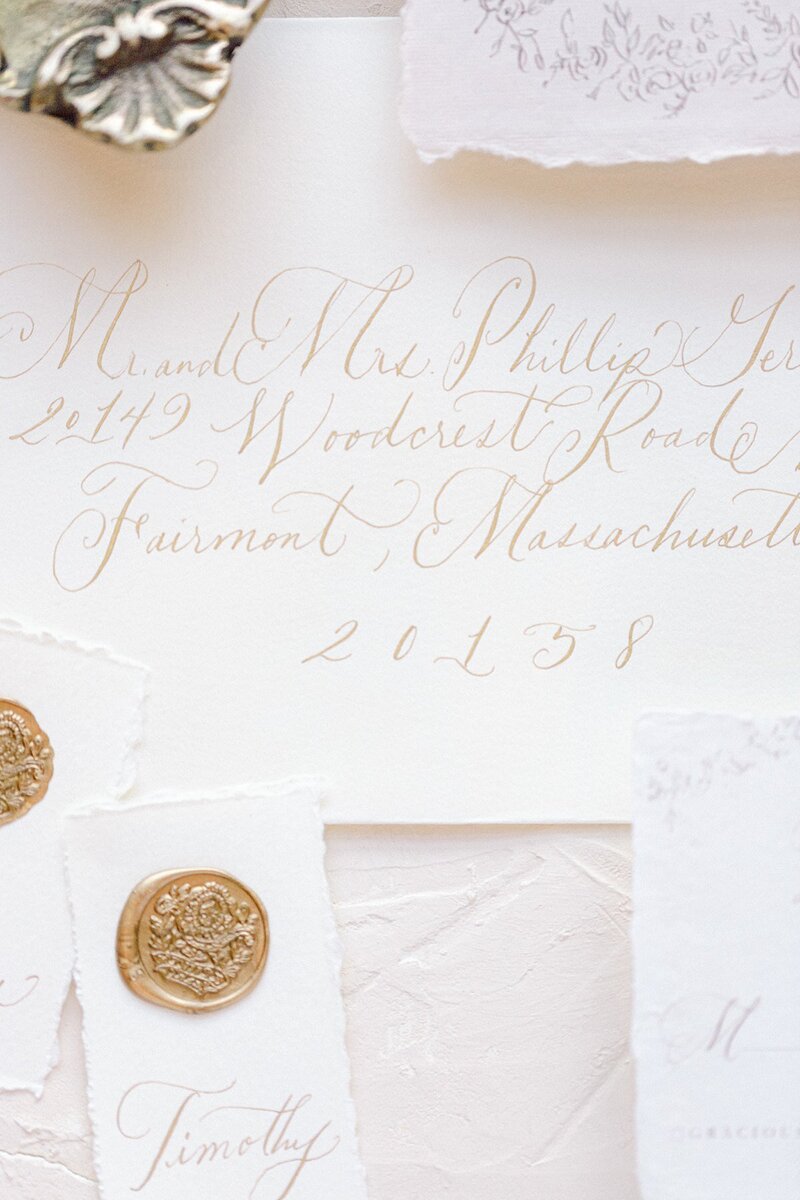 Mr. and Mrs. Phillip Ger
20149 Woodcrest Road
Fairmont, Massachusett
20158
Timothy
M
GRACIOU